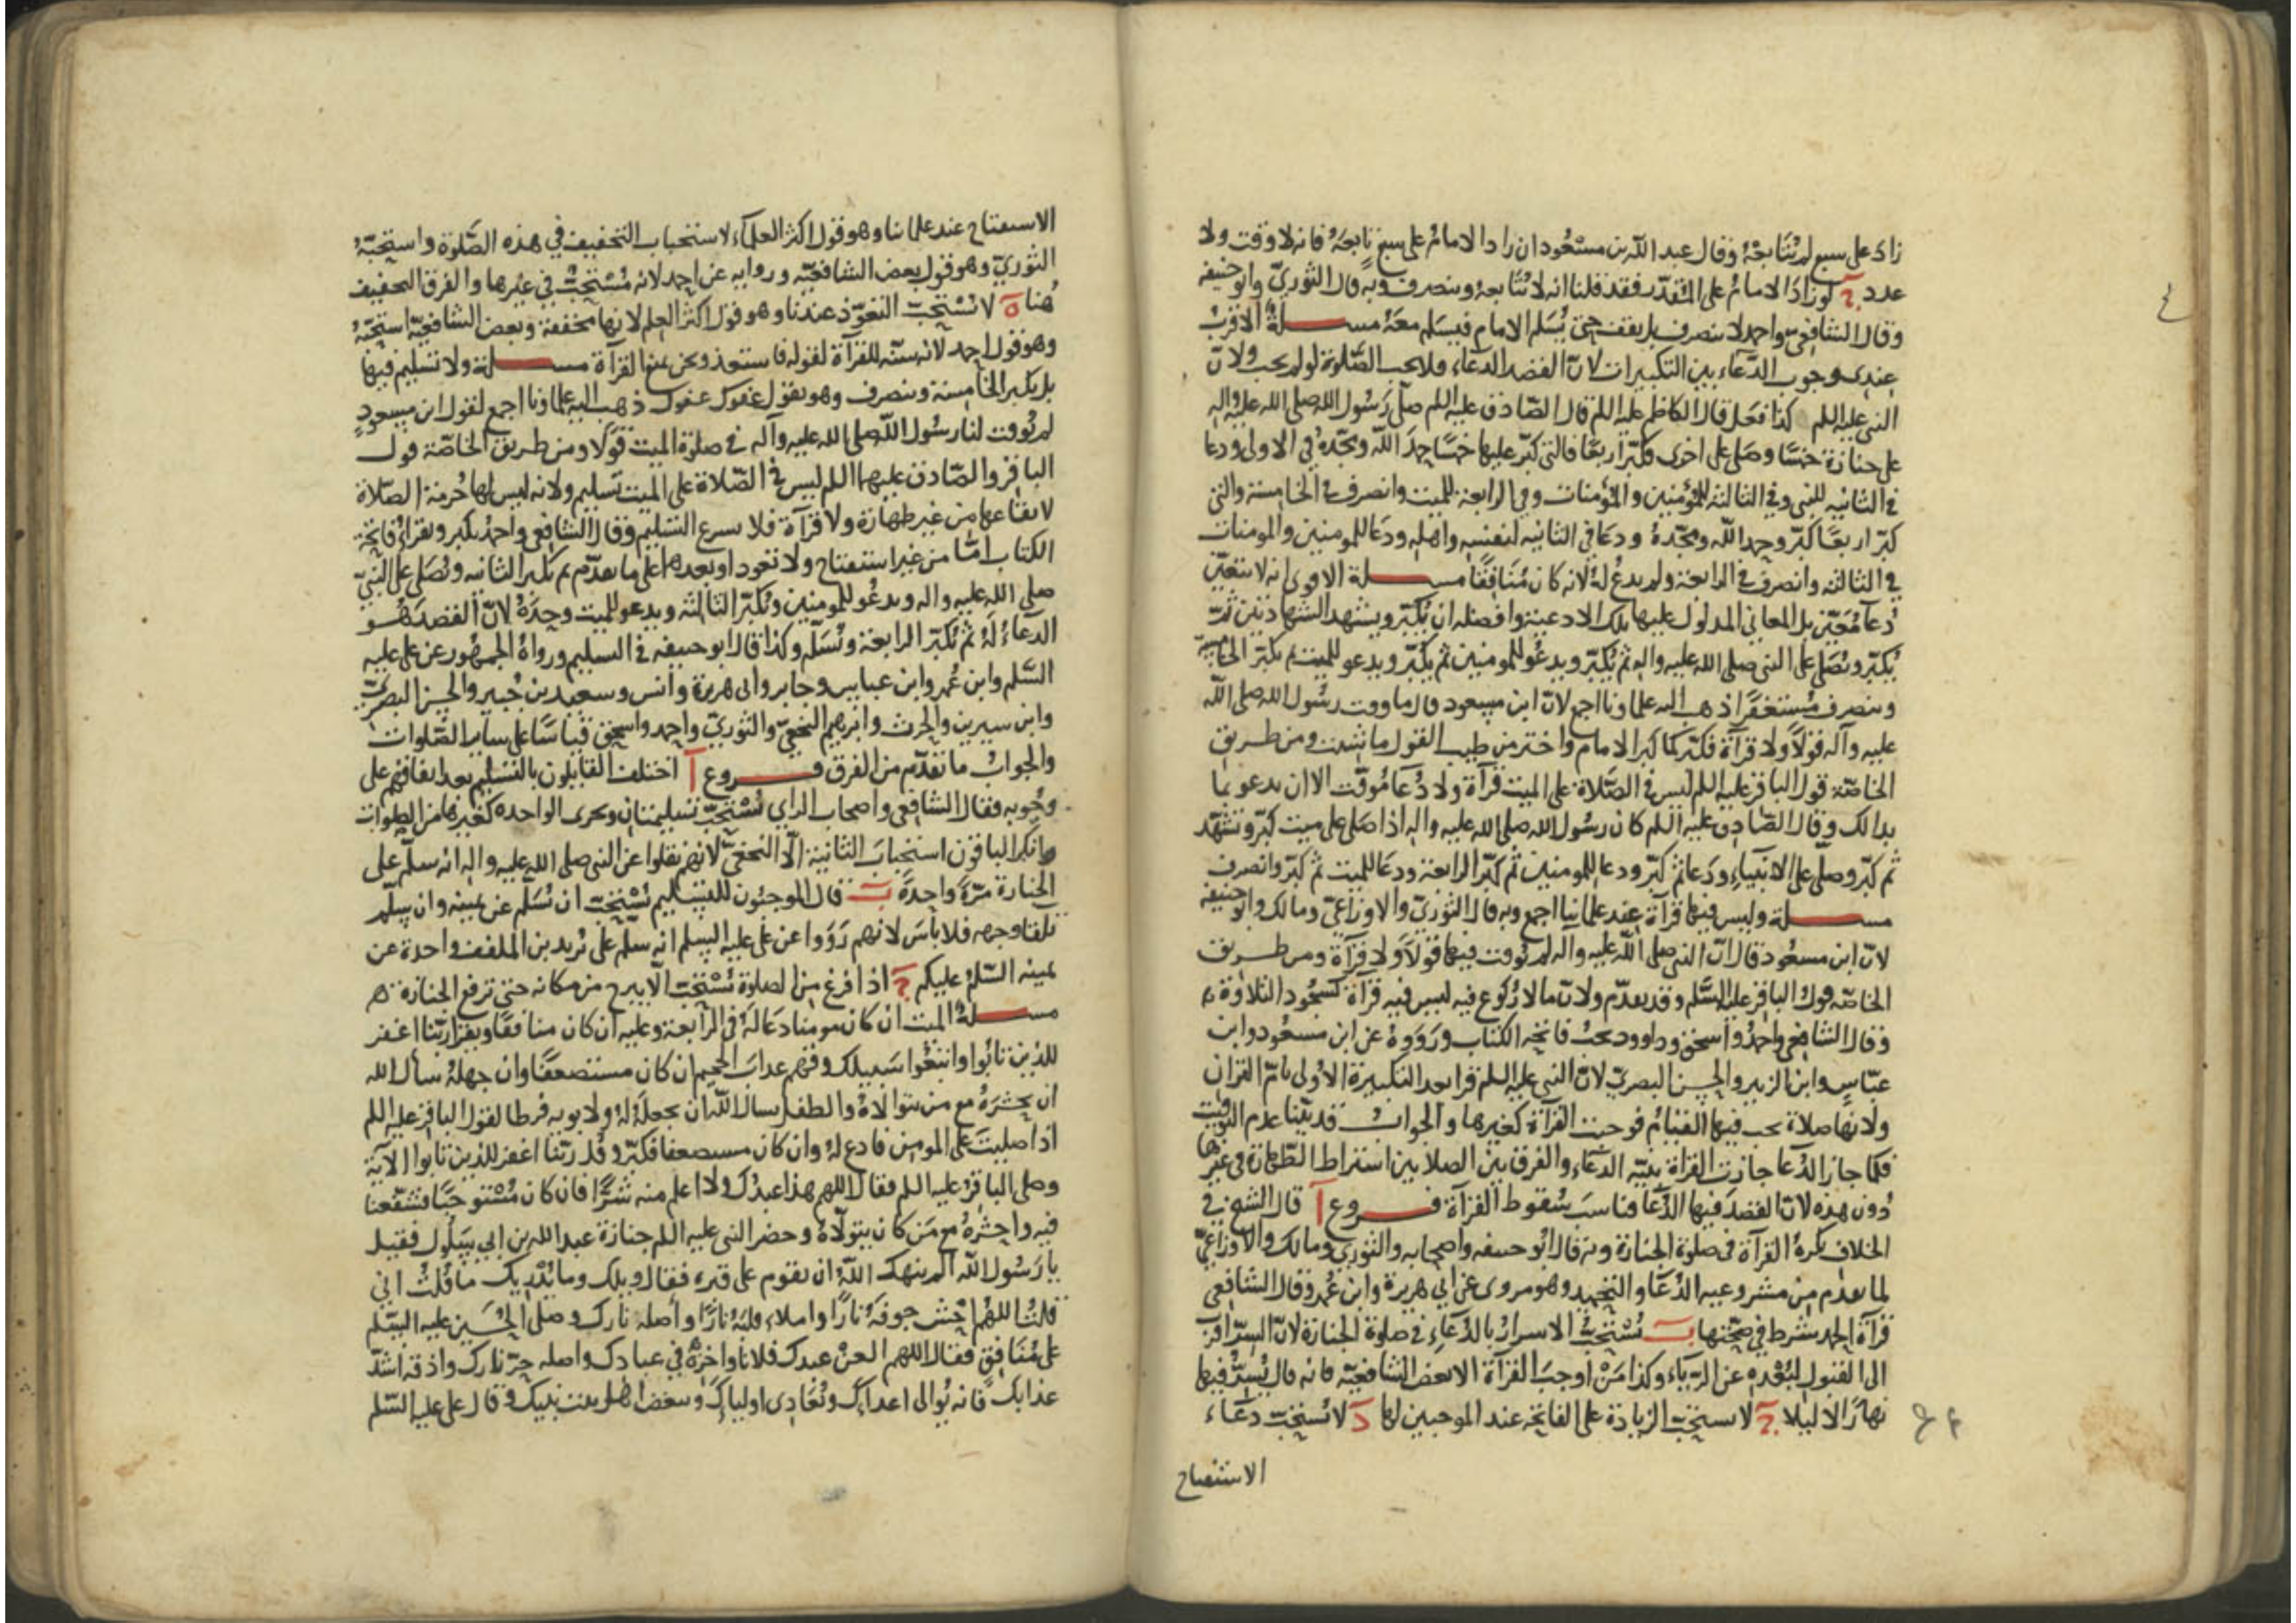 زاد على سبع لم يتابعه وقال عبد الله بن مسعود ان زاد الامام على سبع تابعه فانه لا وقت ولا
عدد ج لو زاد الامام على المقدر فقد قلنا انه لا يتابعه وينصرف وبه قال الثوري وابو حنيفه
وقال الشافعي واحمد لا ينصرف بل يقف حتى يسلم الامام فيسلم معه مسلة الاقرب
عندي وجوب الدعاء بين التكبيرات لان القصد الدعاء فلا يجب الصلوة لو لم يجب ولان
النبي عليه السلم كذا فعل قال الكاظم عليه السلم قال الصادق عليه السلم صلى رسول الله صلى الله عليه واله
على جنازة خمسا وصلى على اخرى فكبر اربعا فالتي كبر عليها خمسا حمد الله ومجده في الاولى ودعا
في الثانيه للنبي وفي الثالثة للمؤمنين والمؤمنات وفي الرابعة للميت وانصرف في الخامسة والتي
كبر اربعا كبر وحمد الله ومجده ودعا في الثانيه لنفسه واهله ودعا للمومنين والمومنات
في الثالثة وانصرف في الرابعة ولم يدع له لانه كان منافقا مسلة الاقوى انه لا يتعين
دعآ معين بل المعاني المدلول عليها بتلك الادعية وافضله ان يكبر ويشهد الشهادتين ثم
يكبر ويصلى على النبي صلى الله عليه واله ثم يكبر ويدعو للمومنين ثم يكبر ويدعو للميت ثم يكبر الخامسة
وينصرف مستغفرا ذهب اليه علماونا اجمع لان ابن مسعود قال ما وقت رسول الله صلى الله
عليه وآله قولا ولا قرآة فكبر كما كبر الامام واختر من طيب القول ما شئت ومن طريق
الخاصة قول الباقر عليه السلم ليس في الصلاة على الميت قرآة ولا دعا موقت الا ان يدعو بما
بدالك وقال الصادق عليه السلم كان رسول الله صلى الله عليه واله اذا صلى على ميت كبر وتشهد
ثم كبر وصلى على الانبياء ودعا ثم كبر ودعا للمومنين ثم كبر الرابعة ودعا للميت ثم كبر وانصرف
مسلة وليس فيها قرآة عند علمائنا اجمع وبه قال الثوري والاوزاعي ومالك وابو حنيفه
لان ابن مسعود قال ان النبي صلى الله عليه واله لم يوقت فيها قولا ولا قرآة ومن طريق
الخاصه قول الباقر عليه السلم وقد تقدم ولان ما لا ركوع فيه ليس فيه قرآة كسجود التلاوة
وقال الشافعي واحمد واسحق وداوود يجب فاتحه الكتاب ورووه عن ابن مسعود وابن
عباس وابن الزبير والحسن البصري لان النبي عليه السلم قرا بعد التكبيرة الاولى بام القران
ولانها صلاة يجب فيها القيام فوجبت القرآة كغيرها والجواب قد بينا عدم التوقيت
فكما جاز الدعا جازت القراة بنيه الدعاء والفرق بين الصلاتين اشتراط الطهارة في غيرها
دون هذه لان القصد فيها الدعا فناسب سقوط القرآة فروع آ قال الشيخ في
الخلاف يكره القرآة في صلوة الجنازة وبه قال ابو حنيفه واصحابه والثوري ومالك والاوزاعي
لما تقدم من مشروعيه الدعا والتحميد وهو مروى عن ابي هريرة وابن عمر وقال الشافعي
قرآة الحمد شرط في صحتها ب يستحب الاسرار بالدعاء في صلوة الجنازة لان السر اقرب
الى القبول لبعده عن الرياء وكذا من اوجب القرآة الا بعض الشافعية فانه قال يسر فيها
نهارا لا ليلا ج لا يستحب الزيادة على الفاتحه عند الموجبين لها د لا يستحب دعاء
الاستفتاح
الاستفتاح عند علمائنا وهو قول اكثر العلماء لاستحباب التخفيف في هذه الصلوة واستحبه
الثوري وهو قول بعض الشافعيه وروايه عن احمد لانه مستحب في غيرها والفرق التخفيف
هنا ه لا يستحب التعوذ عندنا وهو قول اكثر العلم لانها مخففة وبعض الشافعية استحبه
وهو قول احمد لانه سنه للقرآة لقوله فاستعذ ونحن نمنع القرآة مسلة ولا تسليم فيها
بل يكبر الخامسة وينصرف وهو يقول عفوك عفوك ذهب اليه علماونا اجمع لقول ابن مسعود
لم يوقت لنا رسول الله صلى الله عليه وآله في صلوة الميت قولا ومن طريق الخاصة قول
الباقر والصادق عليهما السلم ليس في الصلاة على الميت تسليم ولانه ليس لها حرمة الصلاة
لايقاعها من غير طهارة ولا قرآة فلا يسرع التسليم وقال الشافعي واحمد يكبر ويقراء فاتحة
الكتاب اما من غير استفتاح ولا تعوذ او بعدهما على ما تقدم ثم يكبر الثانيه ويصلى على النبي
صلى الله عليه واله ويدعو للمومنين ويكبر الثالثة ويدعو للميت وحده لان القصد هو
الدعاء له ثم يكبر الرابعة ويسلم وكذا قال ابو حنيفه في التسليم ورواه الجمهور عن على عليه
السلم وابن عمر وابن عباس وجابر وابي هريرة وانس وسعيد بن جبير والحسن البصري
وابن سيرين والحرث وابرهيم النخعي والثوري واحمد واسحق قياسا على ساير الصلوات
والجواب ما تقدم من الفرق فروع آ اختلف القايلون بالتسليم بعد اتفاقهم على
وجوبه فقال الشافعي واصحاب الراي يستحب تسليمتان ويجزى الواحده كغيرها من الصلوات
وانكر الباقون استحباب الثانية الا النخعي لانهم نقلوا عن النبي صلى الله عليه واله انه سلم على
الجنازة مرة واحدة ب قال الموجبون للتسليم يستحب ان يسلم عن يمينه وان سلم
تلقا وجهه فلا باس لانهم رووا عن على عليه السلم انه سلم على يزيد بن الملفف واحدة عن
يمينه السلم عليكم ج اذا فرغ من الصلوة يستحب الا يبرح من مكانه حتى ترفع الجنازة
مسلة الميت ان كان مومنا دعا له في الرابعة وعليه ان كان منافقا ويقرا ربنا اغفر
للذين تابوا واتبعوا سبيلك وقهم عذاب الجحيم ان كان مستضعفا وان جهله سال الله
ان يحشره مع من يتوالاه والطفل يسال الله ان يجعله له ولابويه فرطا لقول الباقر عليه السلم
اذا صليت على المومن فادع له وان كان مستضعفا فكبر وقل ربنا اغفر للذين تابوا الآية
وصلى الباقر عليه السلم فقال اللهم هذا عبدك ولا اعلم منه شرا فان كان مستوجبا فشفعنا
فيه واحشره مع من كان يتولاه وحضر النبي عليه السلم جنازة عبد الله بن ابي سلول فقيل
يا رسول الله الم ينهك الله ان تقوم على قبره فقال ويلك وما يدريك ما قلت اني
قلت اللهم احش جوفه نارا واملاء قلبه نارا واصله نارك وصلى الحسين عليه السلم
على منافق فقال اللهم العن عبدك فلانا واخزه في عبادك واصله حر نارك واذقه اشد
عذابك فانه يوالى اعداءك ويعادى اولياك ويبغض اهل بيت نبيك وقال على عليه السلم